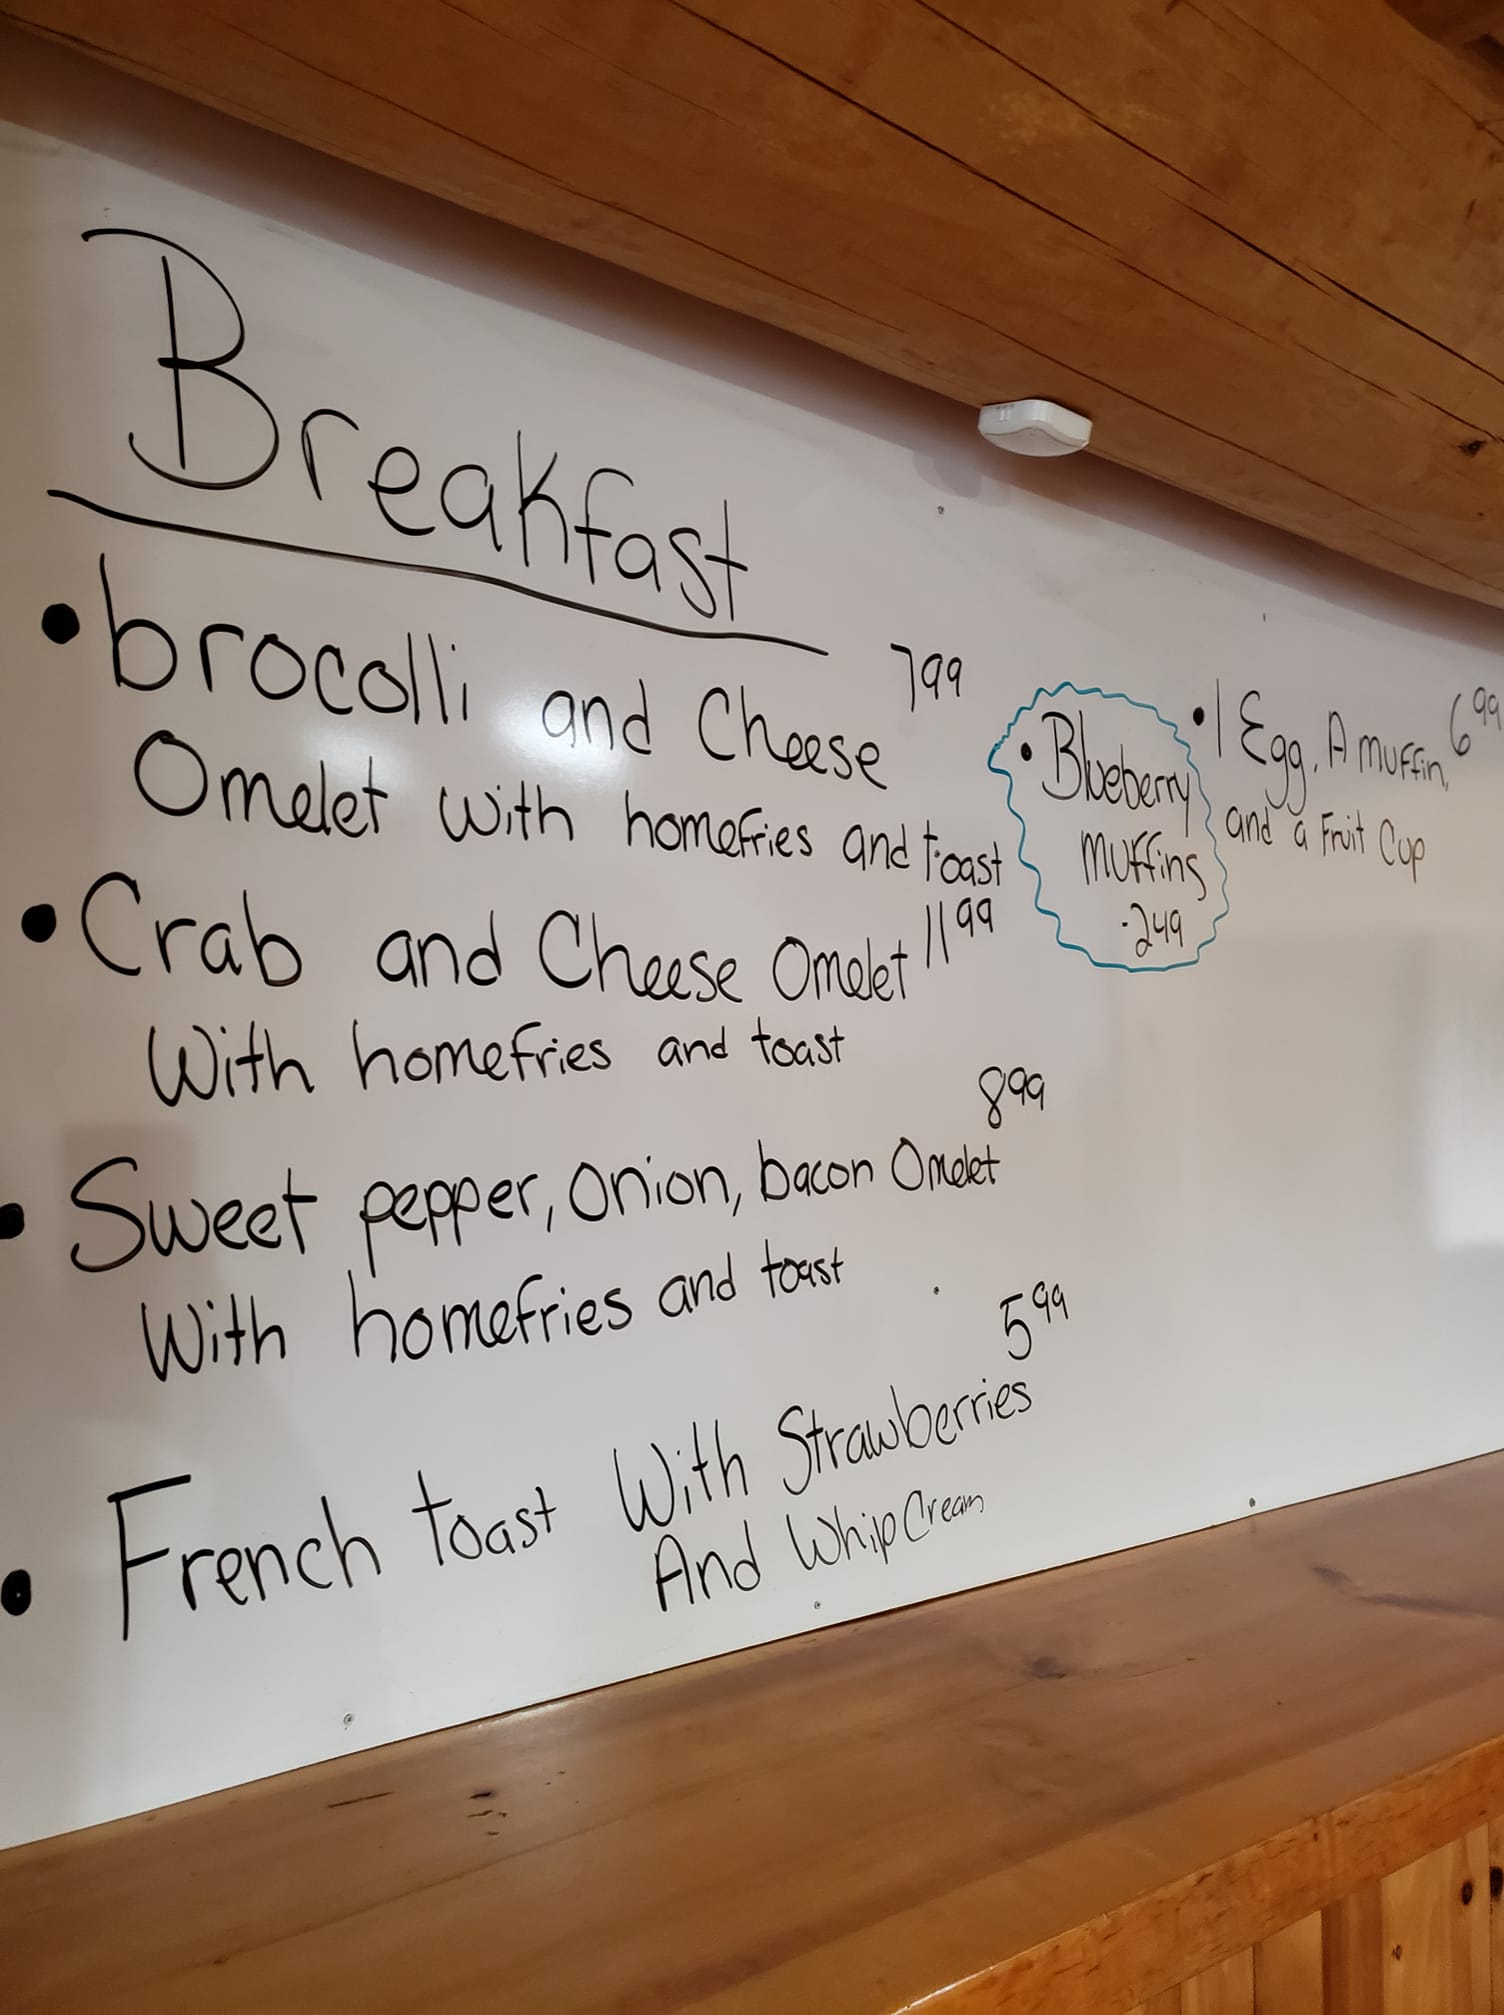 Breakfast
• brocolli and Cheese 7 99
Omelet with homefries and toast
• Crab and Cheese Omelet 11 99
With homefries and toast
8 99
• Sweet pepper, Onion, bacon Omelet
With homefries and toast
5 99
• French toast With Strawberries
And Whip Cream
• Blueberry
Muffins
.249
• 1 Egg, A muffin, 6 99
and a Fruit Cup